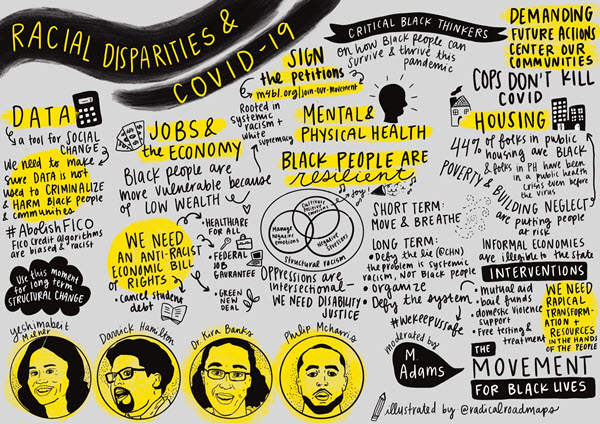 RACIAL DISPARITIES &
COVID-19
CRITICAL BLACK THINKERS
on how Black people can
survive & thrive this
pandemic
DEMANDING
FUTURE ACTIONS
CENTER OUR
COMMUNITIES
SIGN
the petitions
m4bl.org/join-our-movement
Rooted in
systemic
racism +
white
supremacy
COPS DON'T KILL
COVID
DATA
a tool for SOCIAL
CHANGE
We need to make
sure DATA is not
used to CRIMINALIZE
& HARM Black people
& communities
#AbolishFICO
FICO Credit algorithms
are biased & racist
Use this moment
for long term
STRUCTURAL CHANGE
JOBS &
the ECONOMY
Black people are
more vulnerable because
of LOW WEALTH
WE NEED
AN ANTI-RACIST
ECONOMIC BILL
OF RIGHTS
• cancel student
debt
HEALTHCARE
FOR ALL
FEDERAL
JOB
GUARANTEE
GREEN
NEW DEAL
MENTAL &
PHYSICAL HEALTH
BLACK PEOPLE ARE
resilient
joy
Cultivate
Positive
Emotions
Manage
Negative
emotions
Negative
Stressors
Structural racism
Oppressions are
intersectional-
WE NEED DISABILITY
JUSTICE
SHORT TERM:
MOVE & BREATHE
LONG TERM:
• Defy the lie (@CHN)
the problem is systemic
racism, not Black people
• organize
• Defy the system
#wekeepussafe
HOUSING
44% of folks in public
housing are BLACK
& folks in PH have been
in a public health
crisis even before the
virus
POVERTY & BUILDING NEGLECT
are putting people
at risk
INFORMAL ECONOMIES
are illegible to the state
INTERVENTIONS
• mutual aid
• bail funds
• domestic violence
support
• Free testing &
treatment
WE NEED
RADICAL
TRANSFORM-
ATION +
RESOURCES
IN THE HANDS
OF THE PEOPLE
Yeshimabeit
Milner
Darrick Hamilton
Dr Kira Banks
Philip McHarris
moderated by:
M
Adams
THE
MOVEMENT
FOR BLACK LIVES
illustrated by: @radicalroadmaps